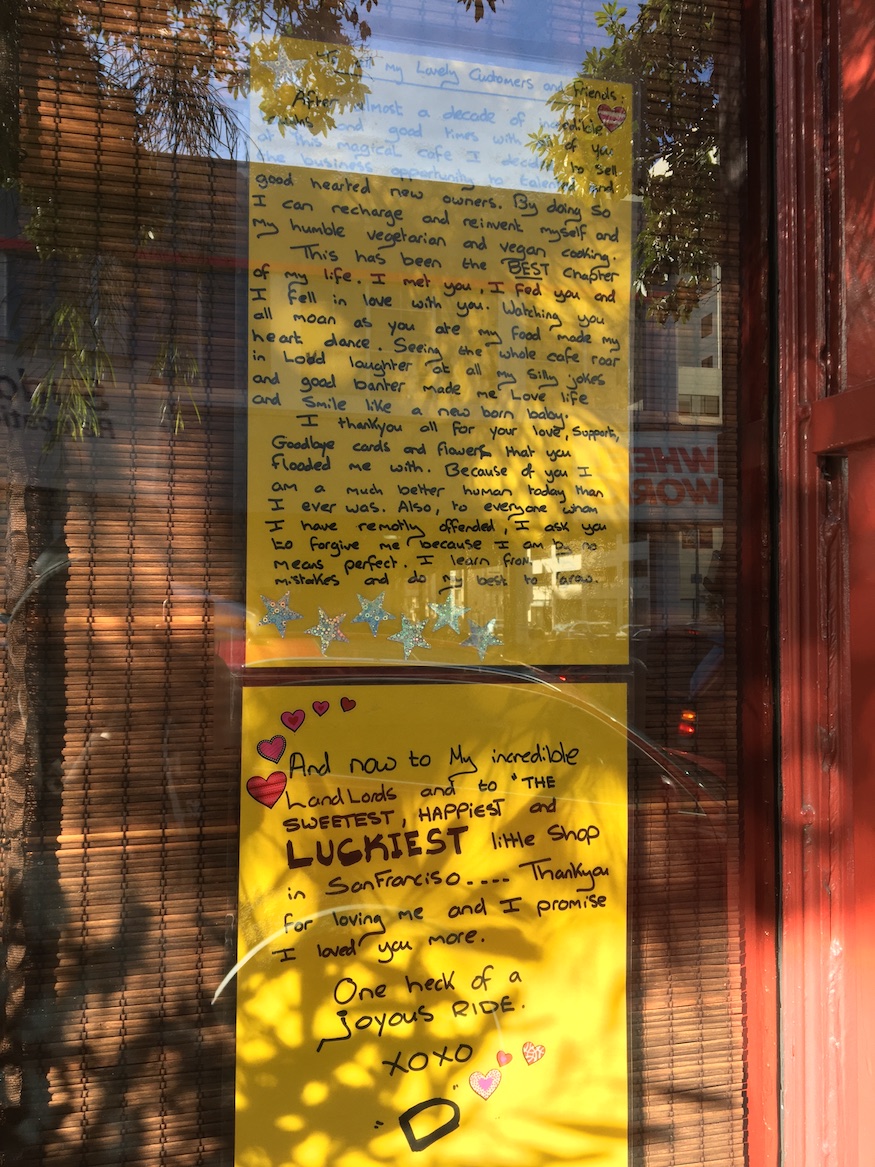 To all my Lovely Customers and friends:
After almost a decade of incredible
and good times with all of you
at this magical cafe I decided to sell
the business opportunity to talented and
good hearted new owners. By doing so
I can recharge and reinvent myself and
My humble vegetarian and vegan cooking.
This has been the BEST chapter
of my life. I met you, I fed you and
I fell in love with you. Watching you
all moan as you ate my food made my
heart dance. Seeing the whole cafe roar
in Loud laughter at all my silly jokes
and good banter made me Love life
and Smile like a new born baby.
I thankyou all for your love, Support,
Goodbye cards and flowers that you
flooded me with. Because of you I
am a much better human today than
I ever was. Also, to everyone whom
I have remotly offended, I ask you
to forgive me because I am by no
means perfect. I learn from
mistakes and do my best to grow.
And now to My incredible
LandLords and to "THE
SWEETEST, HAPPIEST and
LUCKIEST little Shop
in SanFrancisco.... Thankyou
for loving me and I promise
I loved you more.
One heck of a
joyous RIDE.
XOXO
"D"
WHE
WOR